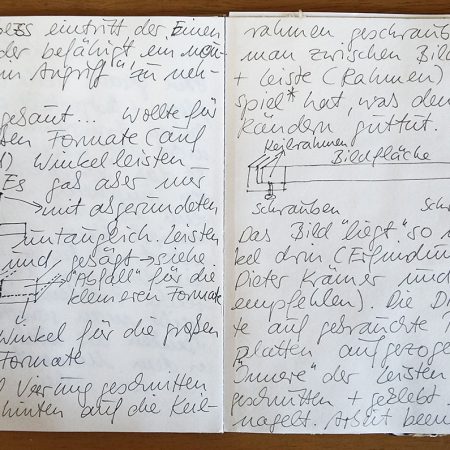 eintritt der einen
der befähigt, ein neu-
in Angriff zu neh-
gebaut... Wollte für
ten Formate (auf
Winkelleisten
Es gab aber nur
mit abgerundeten
untauglich. Leisten
und gesägt → siehe
"Abfall" für die
kleineren Formate
Winkel für die großen
Formate
geschnitten
hinten auf die Keil-
rahmen geschraub
man zwischen Bild
+ Leiste (Rahmen)
spiel* hat, was den
Rändern guttut.
Keilrahmen
Bildfläche
Schrauben
Sch
Das Bild "liegt" so
kel drin (Erfindun
Dieter Krämer und
empfehlen). Die D
te auf gebrauchte
platten aufgezoge
"Innere" der Leisten
geschnitten + geklebt
nagelt. Arbeit been